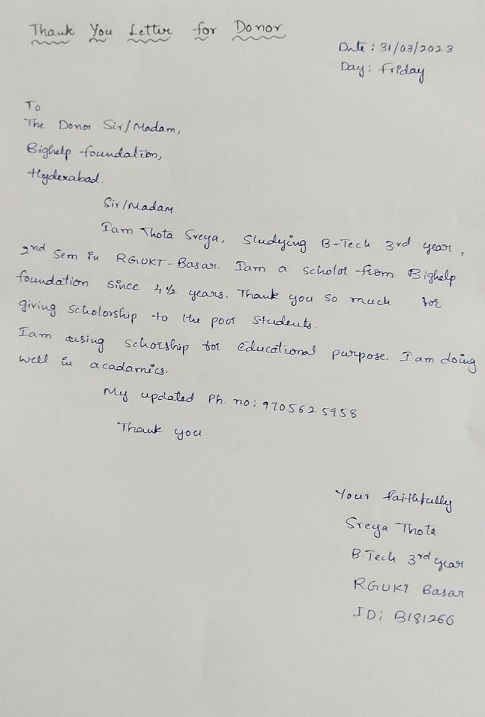 Thank You Letter for Donor
Date : 31/03/2023
Day : Friday
To
The Donor Sir/Madam,
Bighelp foundation,
Hyderabad.
Sir/Madam
Iam Thota Sreya, Studying B-Tech 3rd year,
2nd Sem in RGUKT-Basar. Iam a scholor from Bighelp
foundation since 4½ years. Thank you so much for
giving Scholorship to the poor students.
Iam using Schorship for Educational purpose. I am doing
well in acadamics.
My updated Ph. no: 9705625958
Thank you
Your faithfully
Sreya Thota
B.Tech 3rd year
RGUKT Basar
ID; B181266